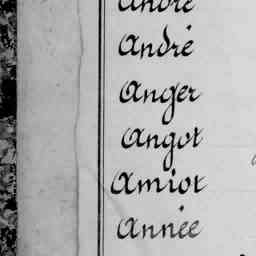 André
André
Anger
Angot
Amiot
Année